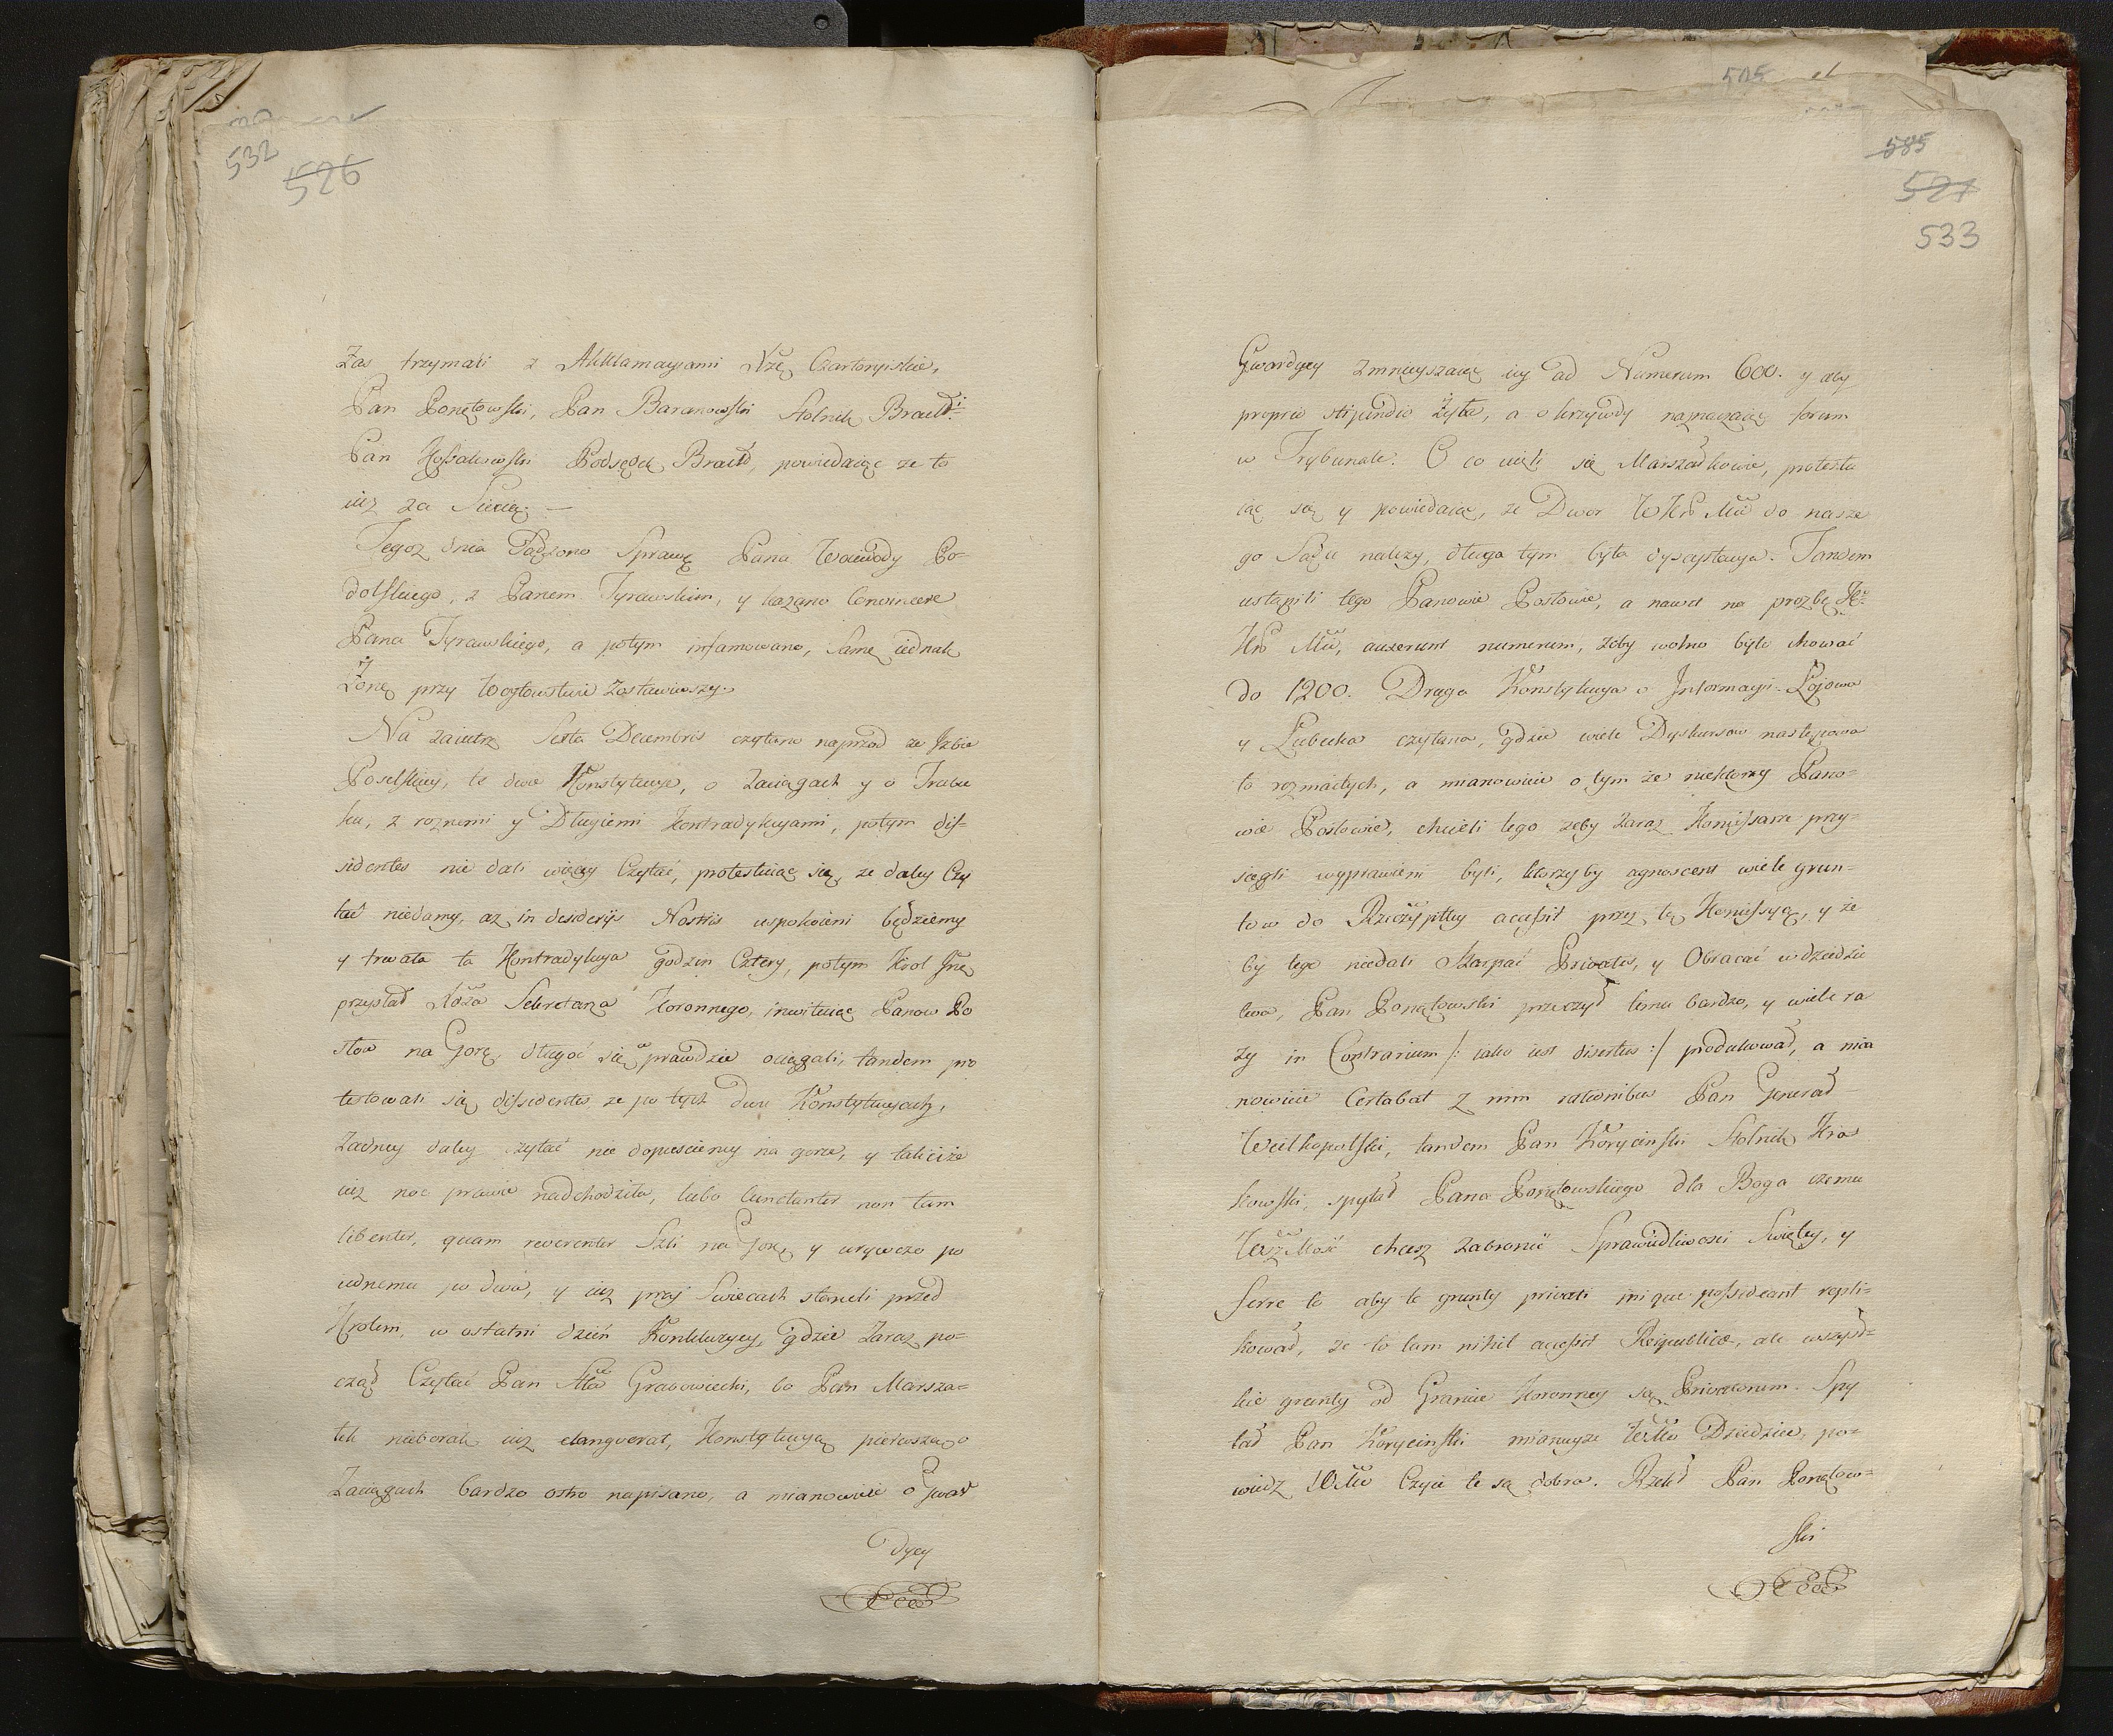 532
526
Zas trzymali z Akklamacyami Xżę Czartoryiskie,
Pan Poniętowski, Pan Baranowski Stolnik Bracł:
Pan Kossakowski Podsędek Bracł, powiedaiąc ze to
iuz za Siecią. —
Tegoz dnia Sądzono Sprawę Pana Woiewody Po-
dolskiego, z Panem Tyrawskim, y kazano Convincere
Pana Tyrawskiego, a potym infamowano, Samę iednak
Żonę przy Wozłowstwie zostawiwszy.
Na zaiutrz Sexta Decembris czytano naprzod ze Izbie
Poselskiey, te dwie Konstytucye, o Zaciągach y o Trakta
ku, z roznemi y Długiemi Kontradykcyami, potym dis-
sidentes nie dali więcey Czytać, protestuiąc się, ze daley Czy
tać niedamy, az in desideriis Nostris uspokoieni będziemy
y trwała ta Kontradykcya godzin Cztery, potym Krol Jmę
przysłał Xdza Sekretarza Koronnego, inwituiąc Panow Po
słow na Gorę, długoć się wprawdzie ociągali, tandem pro
testowali się dissidentes ze po tych dwu Konstytucyach,
Zadney daley czytać nie dopusciemy na gorze, y tak iże
iuz noc prawie nadchodziła, lubo Cunctanter non tam
libenter, quam reverenter Szli na Gorę, y urywczo po
iednemu po dwa, y iuz przy Swiecach staneli przed
Krolem, w ostatni dzień Konkluzyey, gdzie Zaraz po-
czął Czytać Pan Sta Grabowiecki, bo Pan Marsza-
łek nieborak iuz elanguerat, Konstytucyą pierwszą o
Zaciągach bardzo ostro napisano, a mianowicie o Gwar
dyey
505
585
527
533
Gwardyey zmnieyszaiąc iey ad Numerum 600. y aby
proprio stipendio Żyła, a o krzywdy naznaczaiąc forum
w Trybunale. O co uieli się Marszałkowie, protestu
iąc się y powiedaiąc, ze Dwor WKr Mći do nasze
go Sądu nalezy, długa tym była dysceptacya. Tandem
ustąpili tego Panowie Posłowie, a nawet na prozbę
Kr Mći, auxerunt numerum, żeby wolno było chować
do 1200. Druga Konstytucya o Informacyi Łojowa
y Lubecka czytana, gdzie wiele Dyskursow następowa
ło rozmaitych, a mianowicie o tym że niektorzy Pano-
wie Posłowie, chcieli tego zeby zaraz Komissarze przy-
sięgli wyprawieni byli, ktorzyby agnoscant wiele grun-
tow do Rzeczypltey accessit przez tę Komissyą, y że
by tego niedali Szarpać Privatis, y Obracać w dziedzic
two, Pan Poniętowski przeczył temu bardzo, y wiele ra
zy in Contrarium /: iako iest disertus :/ produkował, a mia
nowicie Certabat z nim rationibus Pan Generał
Wielkopolski, tandem Pan Korycinski Stolnik Kra
kowski, spytał Pana Poniętowskiego dla Boga czemu
WszMość chcesz zabronić Sprawiedliwosci Swiętey, y
ferre to aby te grunty privati inique possideant repli-
kował, ze to tam nihil accessit Reipublicæ, ale wszyst-
kie grunty od Granic Koronney są Privatorum. Spy
tał Pan Korycinski mianuyze WMć Dziedzica, po-
wiedz WMć Czyie te są dobra. Rzekł Pan Poniętow-
ski